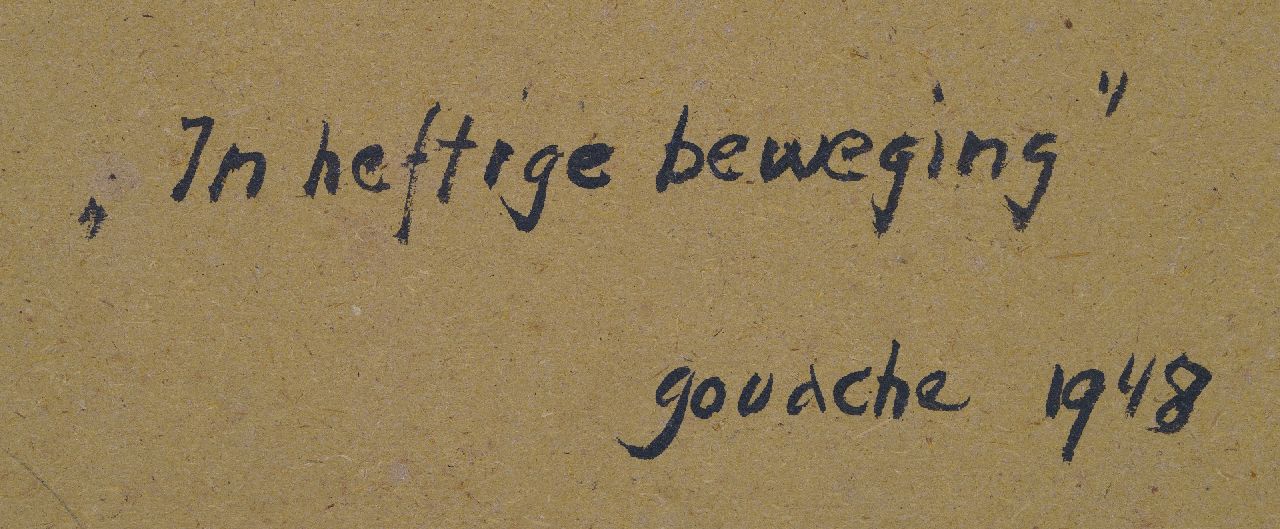 „In heftige beweging"
gouache 1948